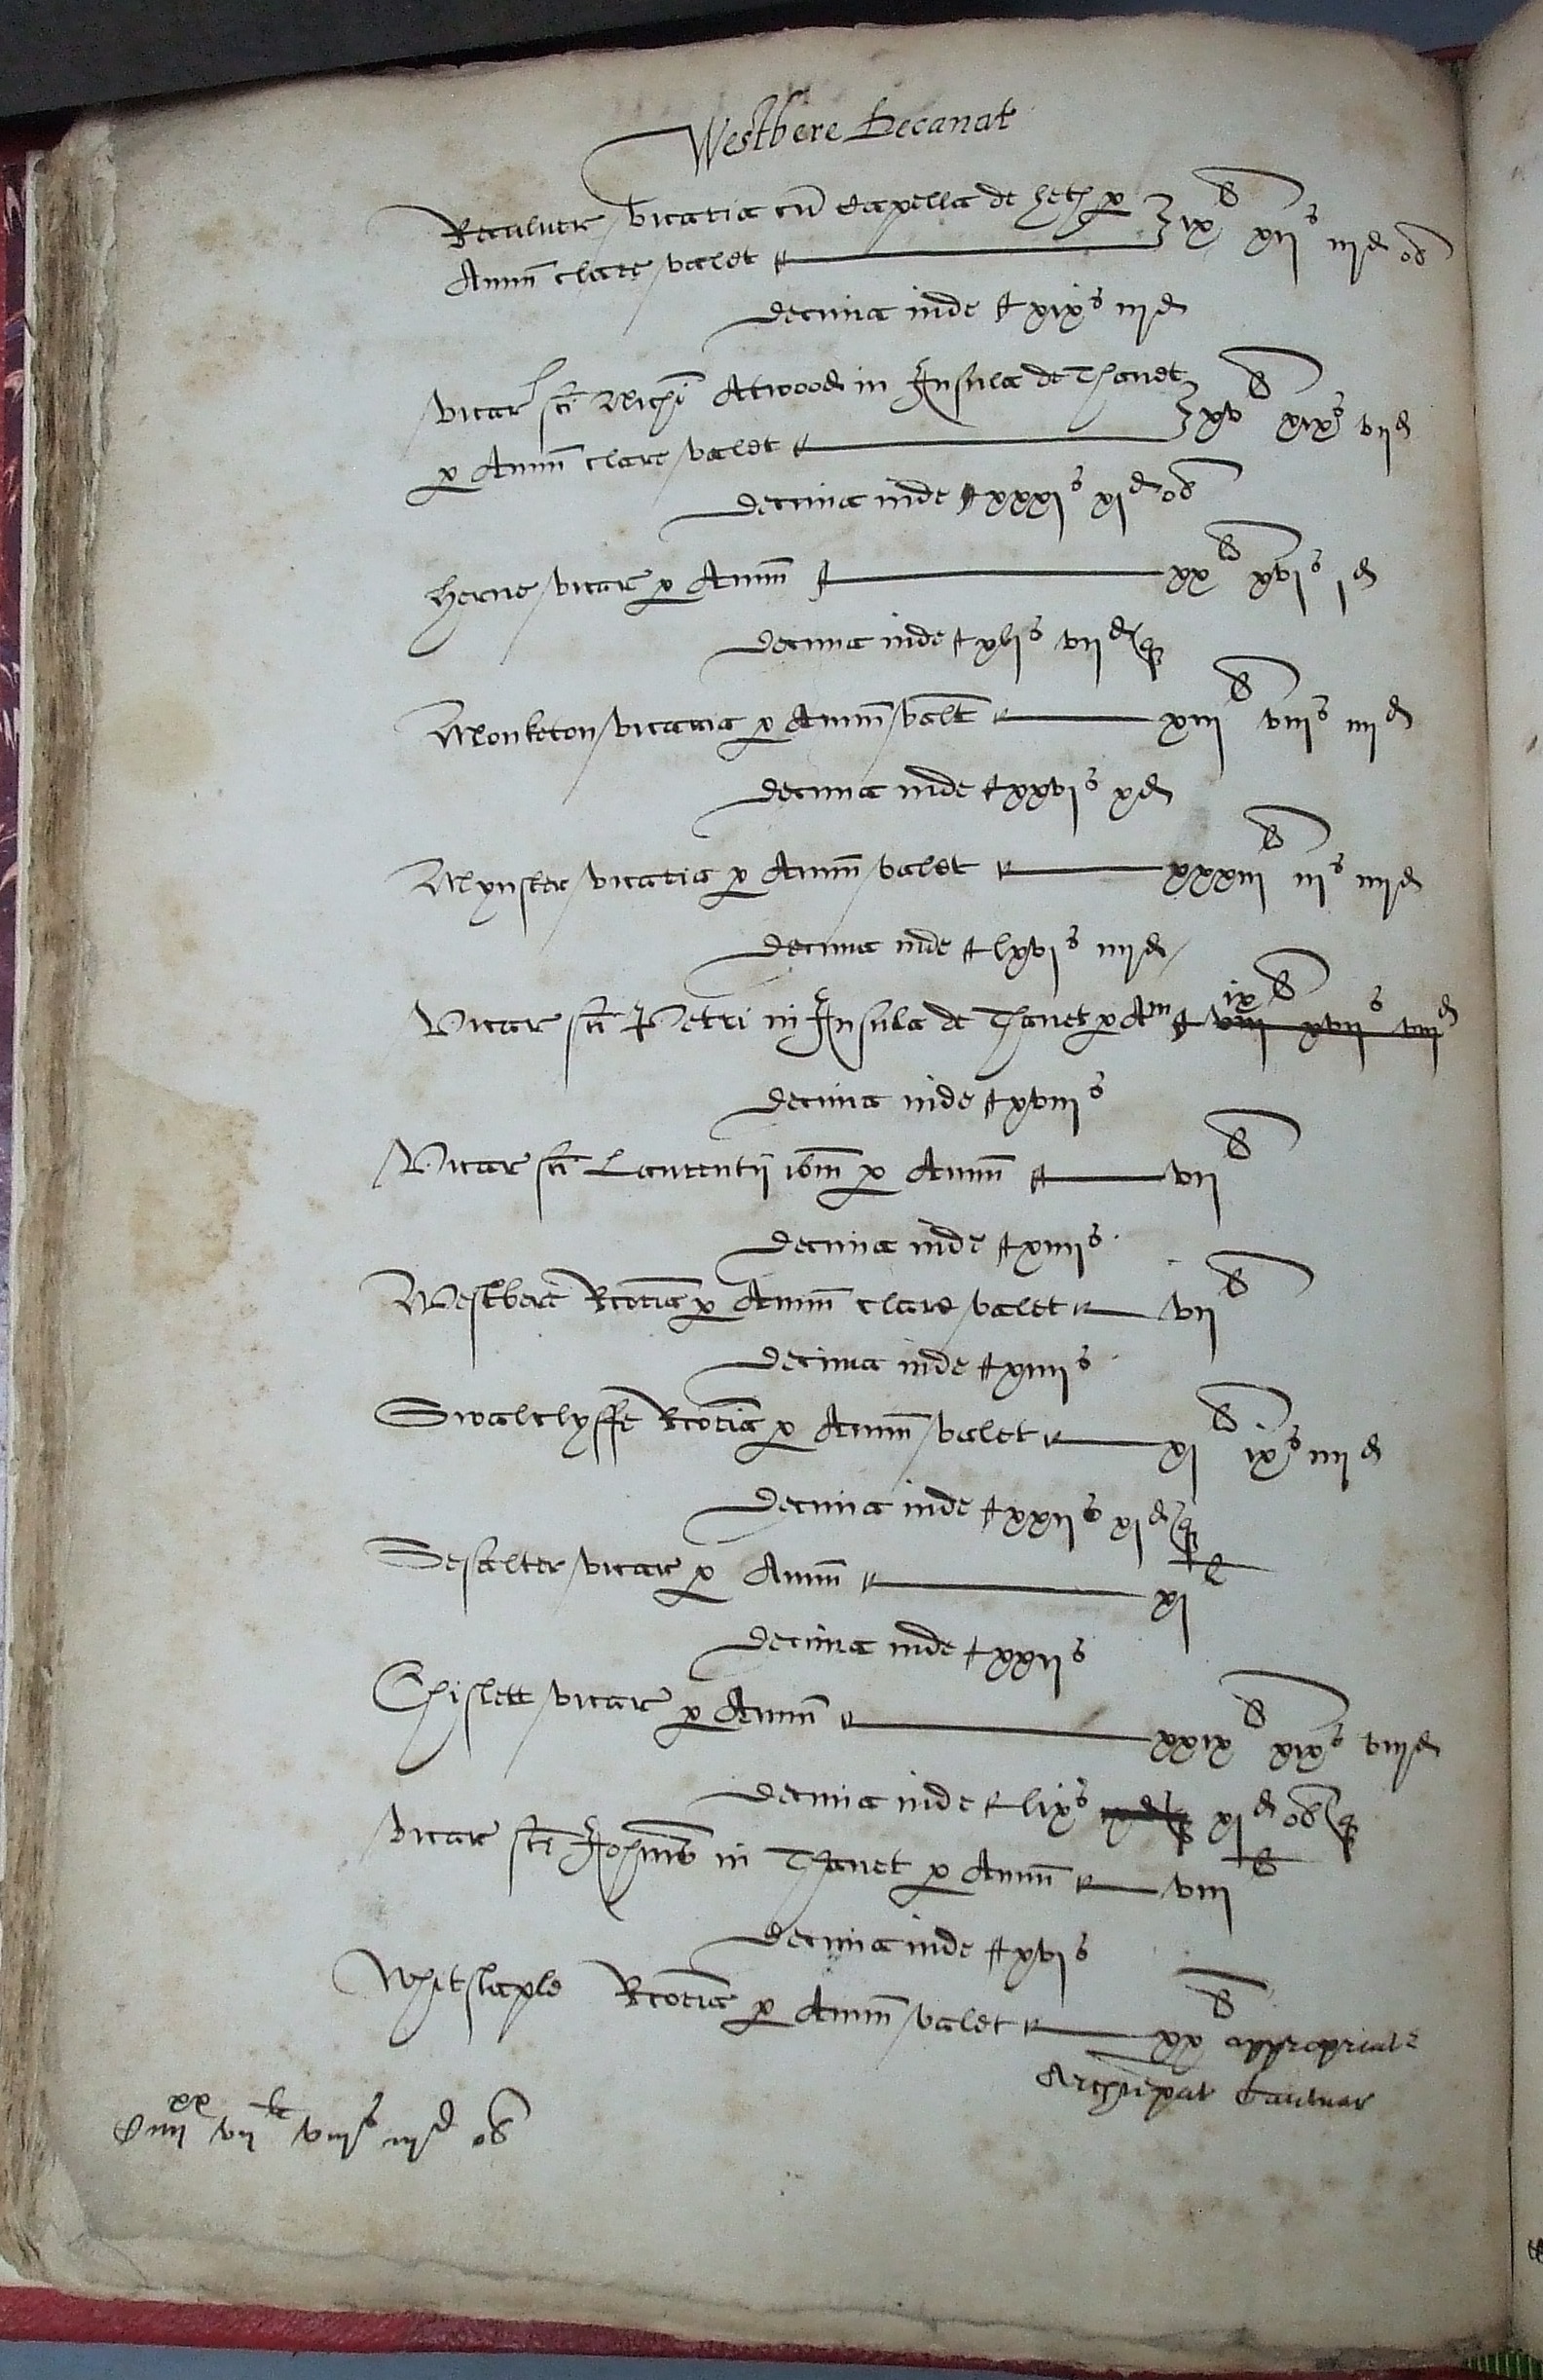 Westbere Decanat
Reculver vicaria cū Capella de heth p
Annū clare valet — ix li xii s iii d ob
Decima inde xix s iii d
Vicar sci Michi Atwood in Insula de Thanet
p Annū clare valet — xv li xix s vii d
Decima inde xxxi s xi d ob
Herne vicar p Annū — xx li xvi s i d
Decima inde xli s vii d q
Monketon vicaria p Annū valt — xiii li viii s iiii d
Decima inde xxvi s x d
Mynster vicaria p Annū valet — xxxiii li iii s iiii d
Decima inde lxvi s iiii d
Vicar sci Petri in Insula de Thanet p Am ix li viii xvii s viii d
Decima inde xviii s
Vicar sci Laurentii ibm p Annū — vii li
Decima inde xiiii s
Westbere Rcoria p Annū clare valet — vii li
Decima inde xiiii s
Swalclyffe Rcoria p Annū valet — xi li ix s iiii d
Decima inde xxii s xi d q
Sesalter vicar p Annū — xi li
Decima inde xxii s
Chislett vicar p Annū — xxix li xix s viii d
Decima inde lix s xi d ob q
Vicar sci Johnis in Thanet p Annū — viii li
Decima inde xvi s
Whitstaple Rcoria p Annū valet — xx li appropriat
Archiepat Cantuar
C iiii xx vii li viii s iii d ob